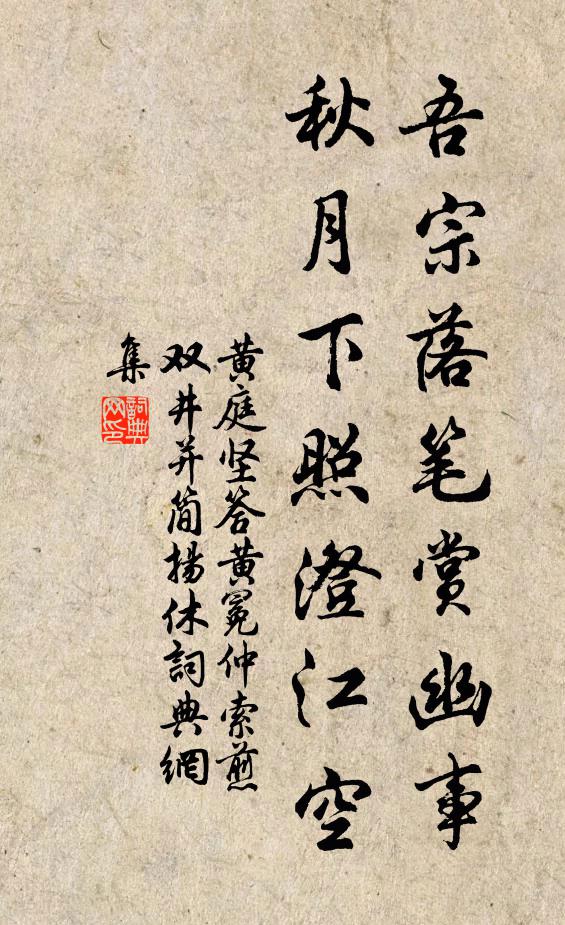 吾宗落笔赏幽事
秋月下照澄江空
黄庭坚答黄冕仲索煎
双井并简揚休詞典網
集
詞典网印